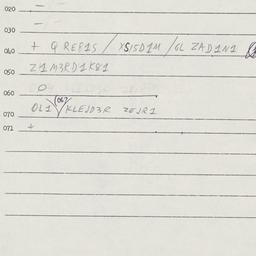 020 —
030 —
040 + Q REP1S / XSISD1M / GL ZAD1N1
050 Z1M3RD1K81
060 O
067
070 OL1 / KLEJD3R ZEJR1
071 +